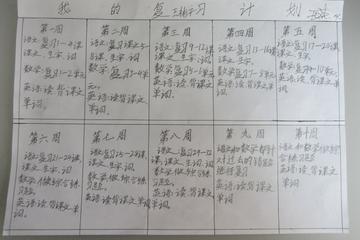 我的复习计划
第一周
语文:复习1-4课
课文、生字、词
数学:复习1-2单元
英语:读背课文
单词。
第二周
语文:复习5-8课
课文、生字、词
数学:复习3-4单元。
英语:读背课文
单词。
第三周
语文:复习9-12课
课文、生字、词
英语:读背课文
单词。
第四周
语文:复习13-16课
课文、生字、词
英语:读背课文
单词。
第五周
语文:复习17-20课
课文、生字、词
英语:读背课文
单词。
第六周
语文:复习21-24课
课文、生字、词
数学:做综合练
习题。
英语:读背课文
单词。
第七周
语文:复习25-28课
课文、生字、词
数学:做综合练
习题。
英语:读背课文
单词
第八周
课文、生字、词
数学:做综合练
习题。
英语:读背课文
单词
第九周
语文和数学都针
对过去的错题
进行复习
英语:读背课文
单词
第十周
语文和数学做综
合练习题
英语:读背课文
单词